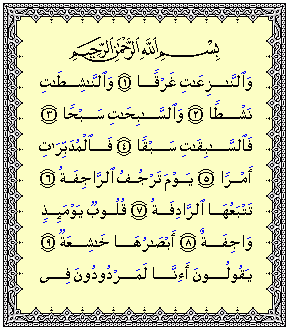 بِسْمِ ٱللَّهِ ٱلرَّحْمَٰنِ ٱلرَّحِيمِ
وَٱلنَّٰزِعَٰتِ غَرْقًا ١ وَٱلنَّٰشِطَٰتِ
نَشْطًا ٢ وَٱلسَّٰبِحَٰتِ سَبْحًا ٣
فَٱلسَّٰبِقَٰتِ سَبْقًا ٤ فَٱلْمُدَبِّرَٰتِ
أَمْرًا ٥ يَوْمَ تَرْجُفُ ٱلرَّاجِفَةُ ٦
تَتْبَعُهَا ٱلرَّادِفَةُ ٧ قُلُوبٌ يَوْمَئِذٍ
وَاجِفَةٌ ٨ أَبْصَٰرُهَا خَٰشِعَةٌ ٩
يَقُولُونَ أَءِنَّا لَمَرْدُودُونَ فِى